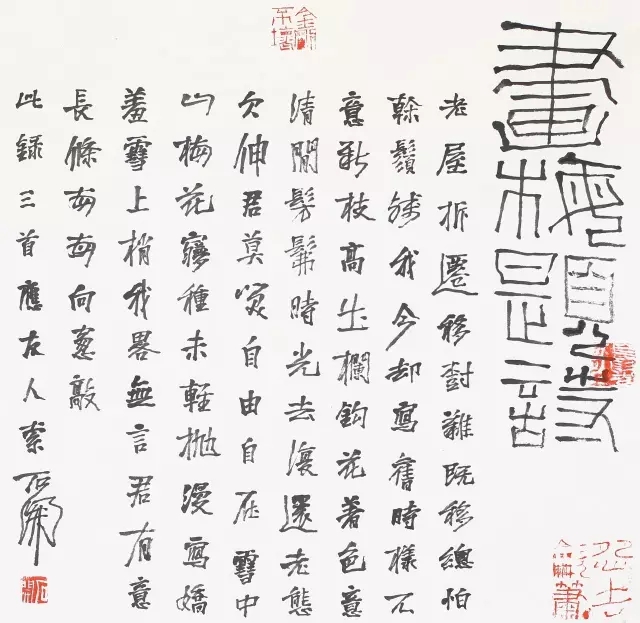 金剛不壞
畫梅題
老屋拆遷移樹難既移總怕
榦鬚殘我今却寫舊時樣不
意新枝高出欄鈎花著色意
清閒髣髴時光去復還老態
欠伸君莫笑自由自在雪中
山梅花種未輕拋漫寫嬌
羞雪上梢我畧無言君有意
長條每每向窗敲
此錄三首應友人索石